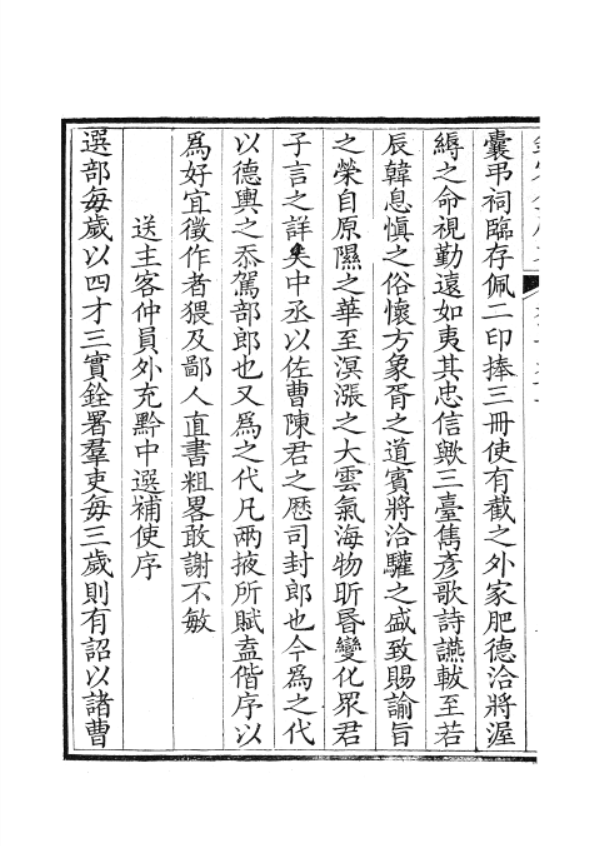 囊弔祠臨存佩二印捧三冊使有截之外家肥德洽將渥
縟之命視勤遠如夷其忠信歟三臺雋彥歌詩讌軷至若
辰韓息愼之俗懷方象胥之道賓將洽驩之盛致賜諭旨
之榮自原隰之華至溟漲之大雲氣海物昕昬變化衆君
子言之詳矣中丞以佐曹陳君之歷司封郎也今爲之代
以德輿之忝駕部郎也又爲之代凡兩掖所賦盍偕序以
爲好宜徵作者猥及鄙人直書粗畧敢謝不敏
送主客仲員外充黔中選補使序
選部每歲以四才三實銓署羣吏每三歲則有詔以諸曹